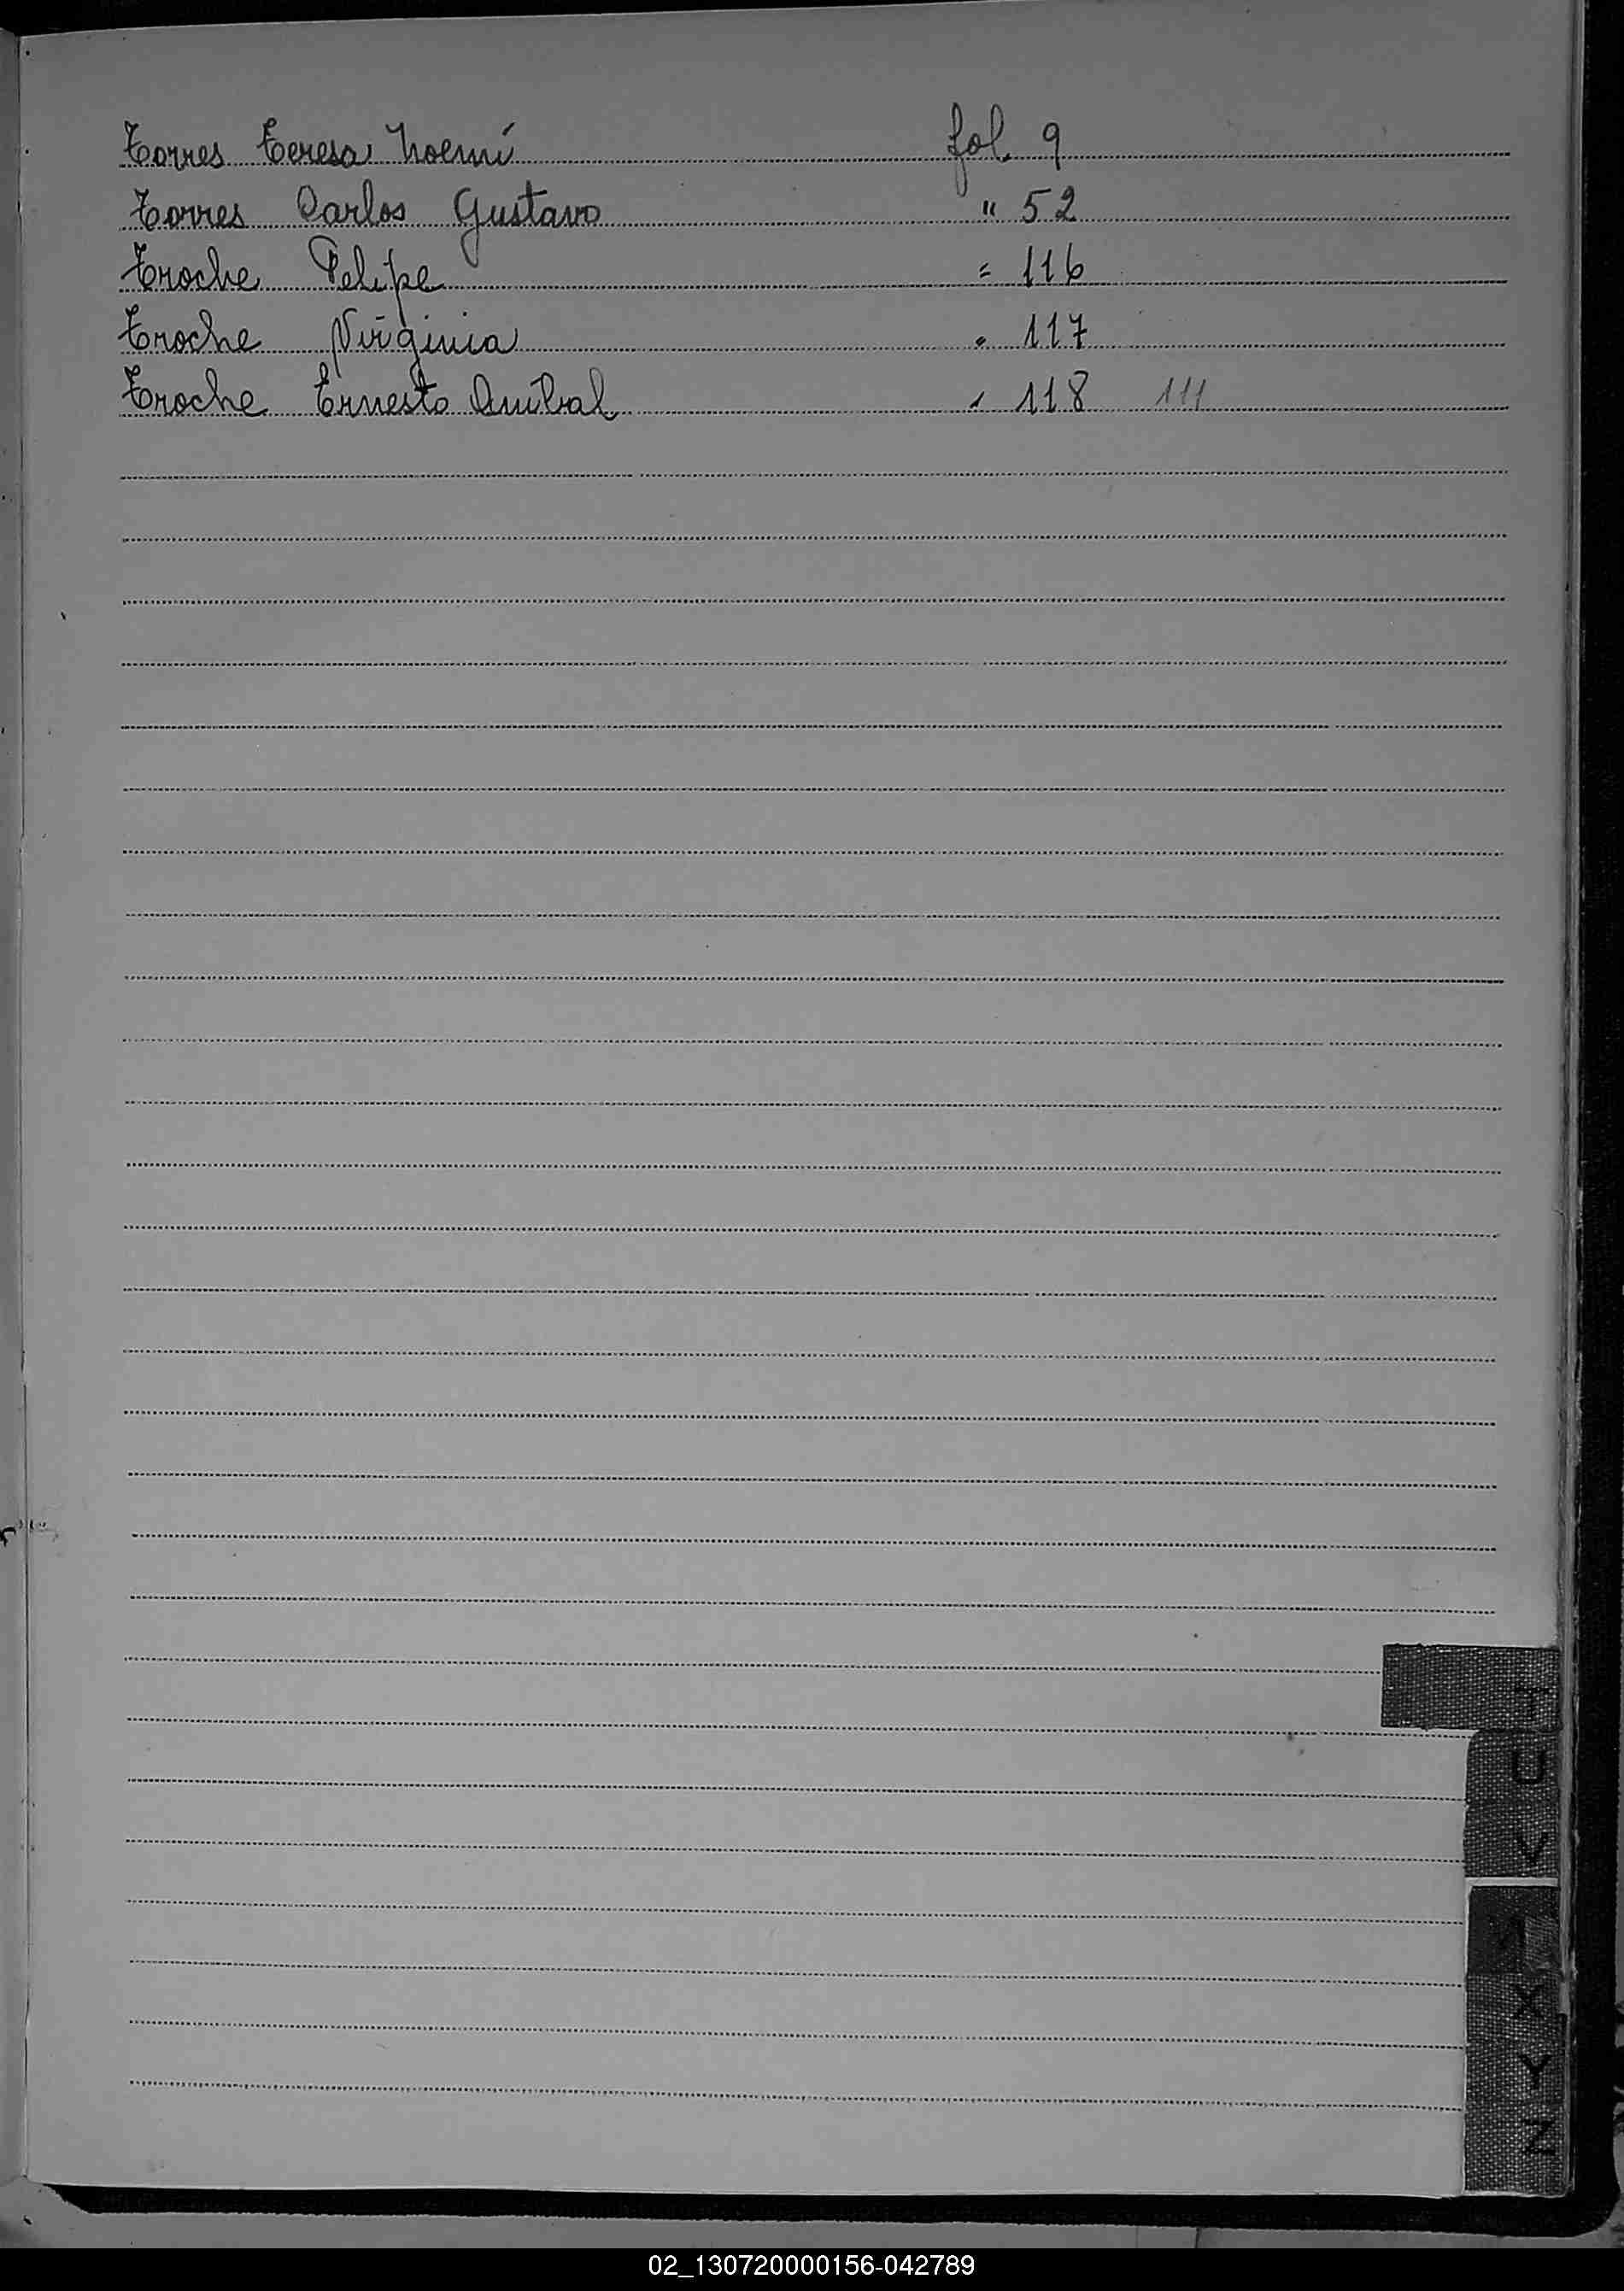 Torres Teresa Noemí fol. 9
Torres Carlos Gustavo " 52
Troche Felipe " 116
Troche Virginia " 117
Troche Ernesto Anibal " 118 111
T
U
V
X
Y
Z
02_130720000156-042789